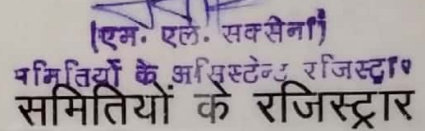 (एम. एल. सक्सेना)
समितियों के असिस्टेन्ट रजिस्ट्रार
समितियों के रजिस्ट्रार